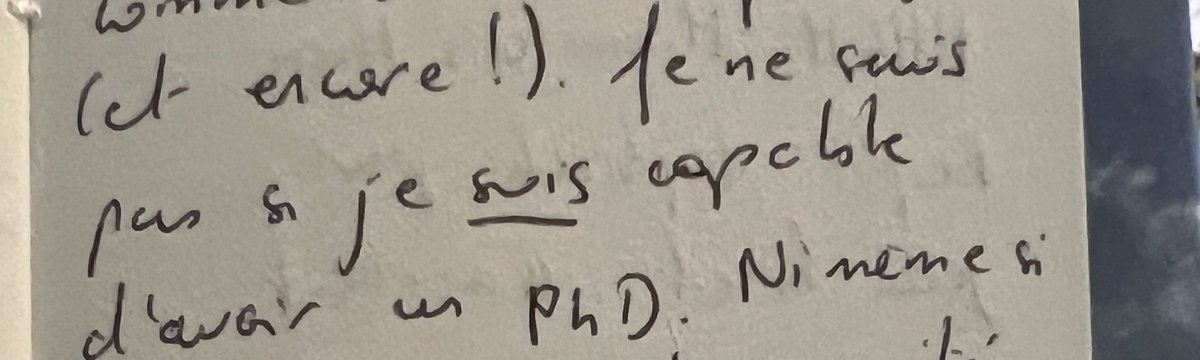 (et encore !). Je ne suis
pas si je suis capable
d'avoir un PhD. Ni même si